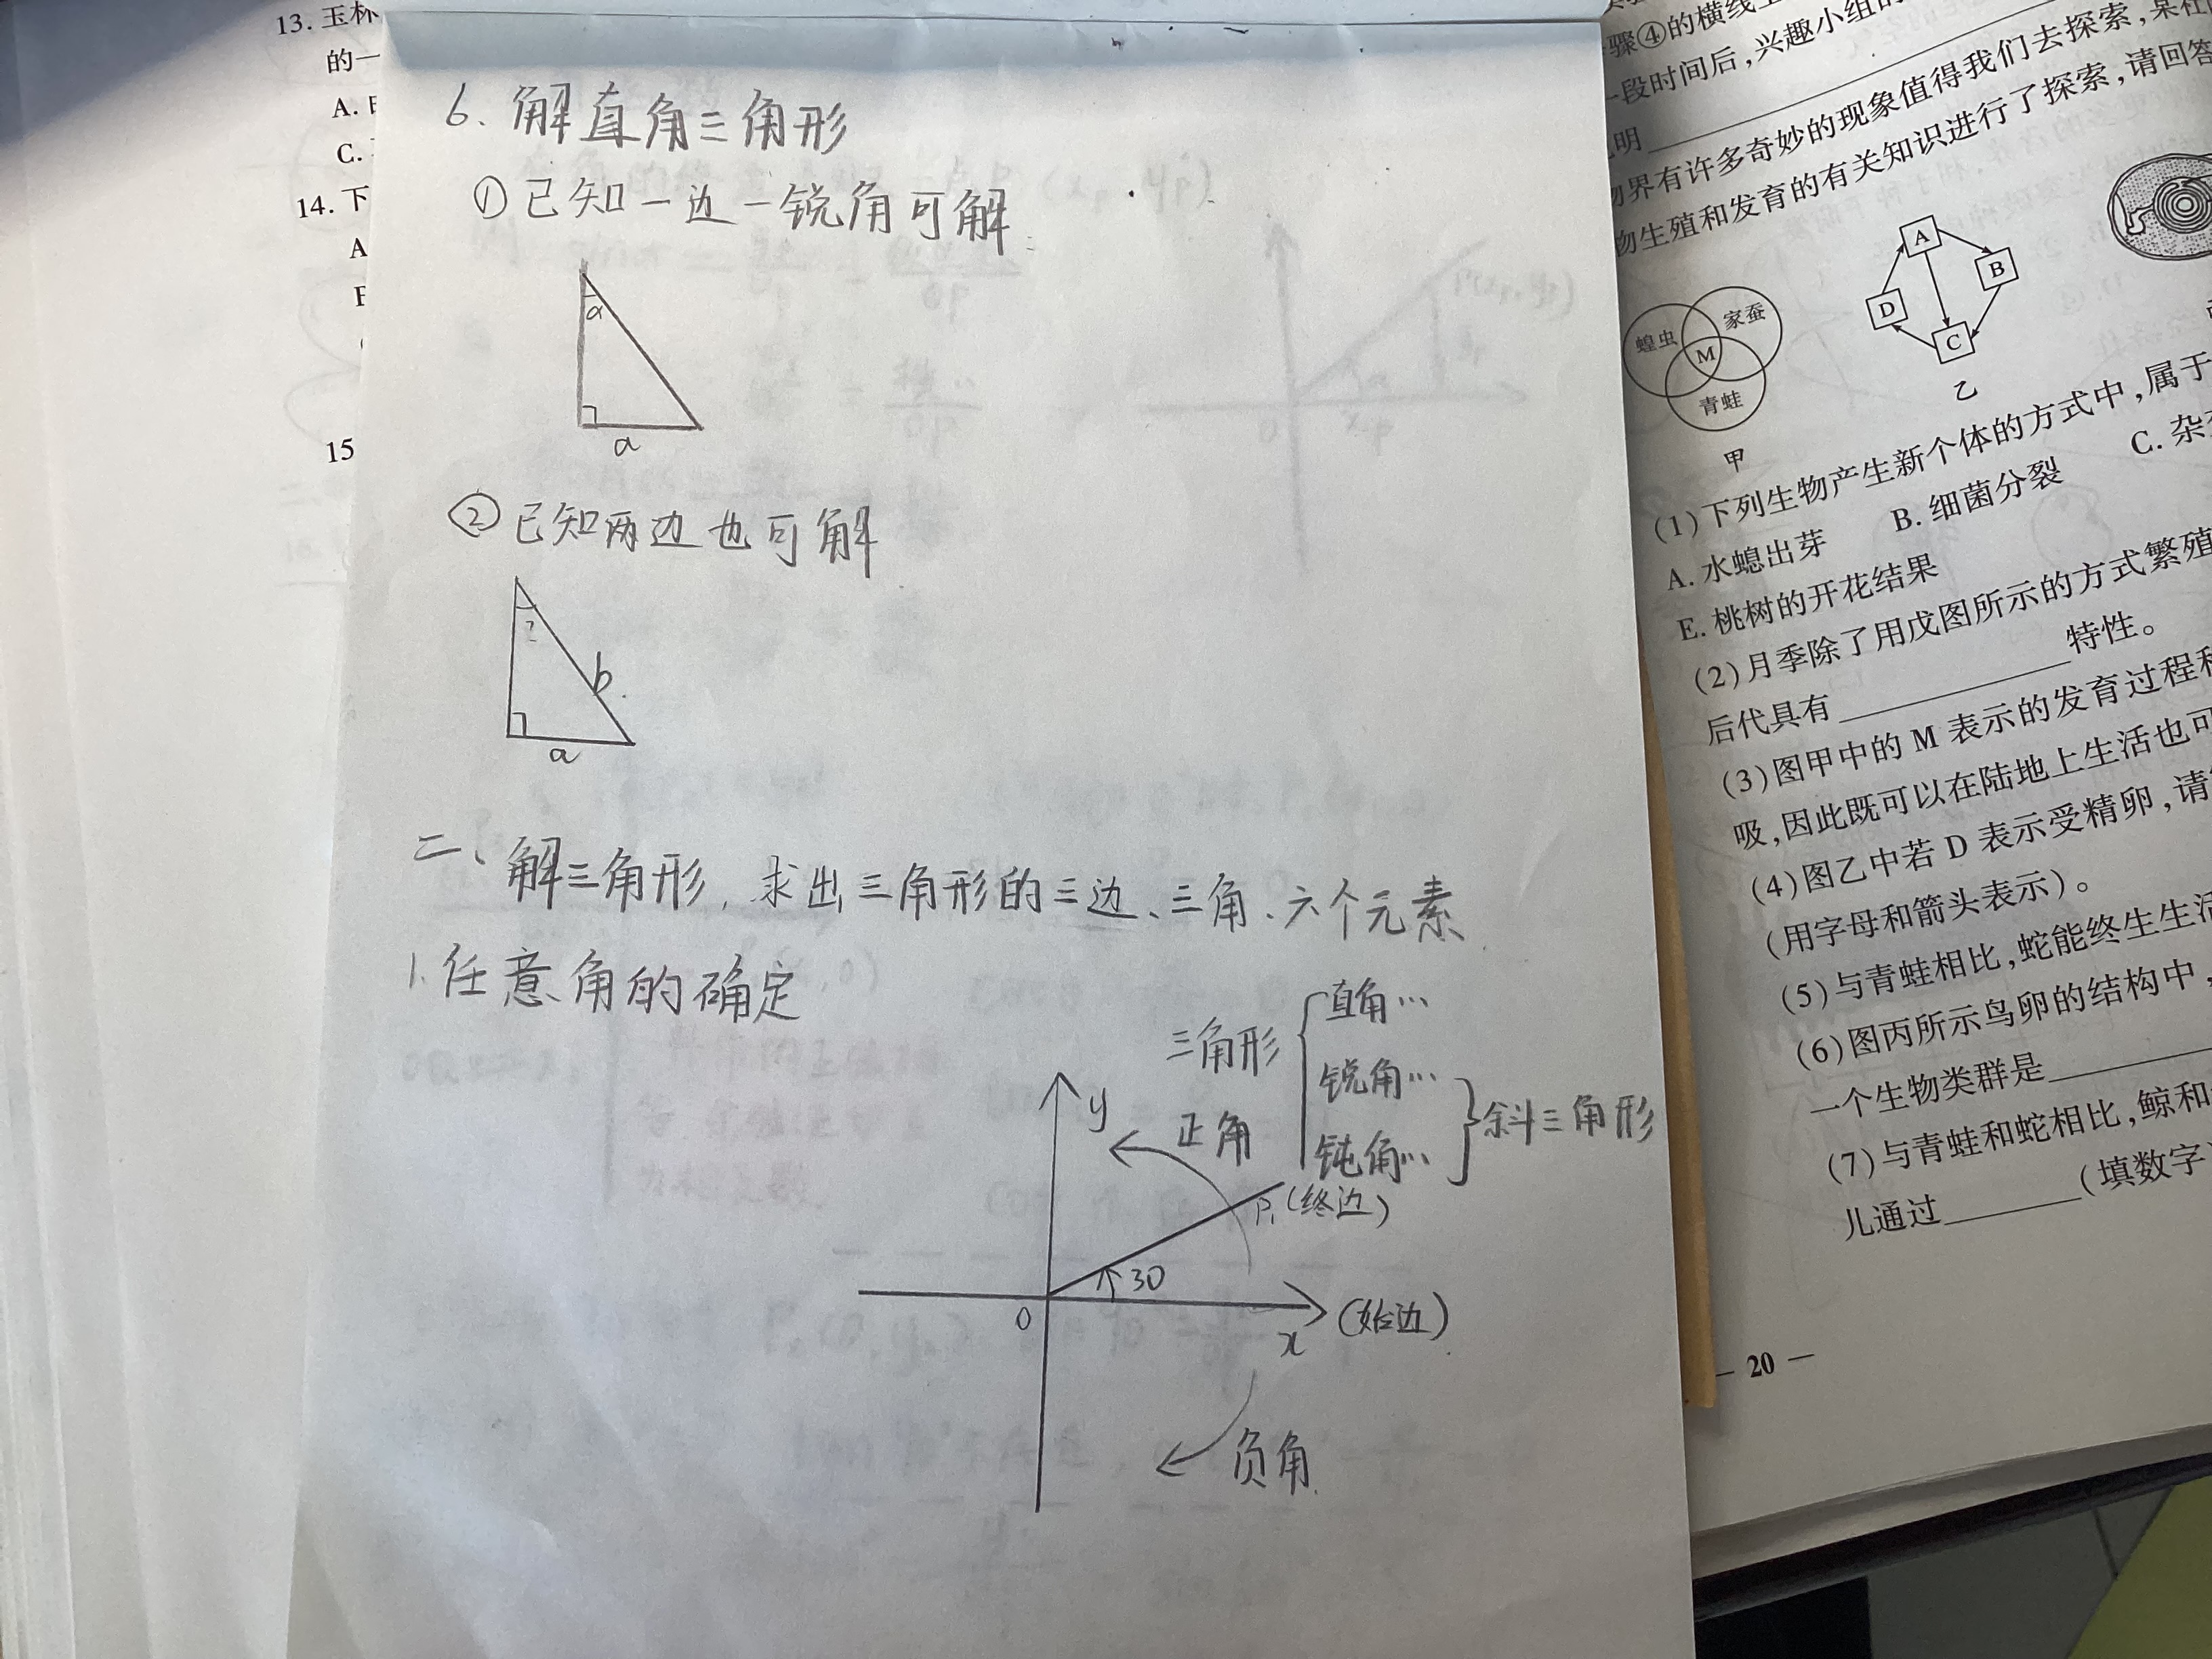 13. 玉
的一
A.
C.
14. 下
A
15
6、解直角三角形
①已知一边一锐角可解
α
a
②已知两边也可解
?
b
a
二、解三角形，求出三角形的三边、三角、六个元素
1.任意角的确定
三角形
直角…
锐角…
钝角…
斜三角形
y
正角
P₁(终边)
30
0
x
(始边)
负角
骤④的横线
一段时间后,兴趣小组的
明
物界有许多奇妙的现象值得我们去探索,某社
物生殖和发育的有关知识进行了探索,请回答
蝗虫
家蚕
M
青蛙
甲
A
B
D
C
乙
(1)下列生物产生新个体的方式中,属于
A. 水螅出芽 B. 细菌分裂 C. 杂
E. 桃树的开花结果
(2)月季除了用戊图所示的方式繁殖
后代具有 特性。
(3)图甲中的 M 表示的发育过程
吸,因此既可以在陆地上生活也可
(4)图乙中若 D 表示受精卵,请
(用字母和箭头表示)。
(5)与青蛙相比,蛇能终生生活
(6)图丙所示鸟卵的结构中,
一个生物类群是
(7)与青蛙和蛇相比,鲸和
儿通过 (填数字
— 20 —